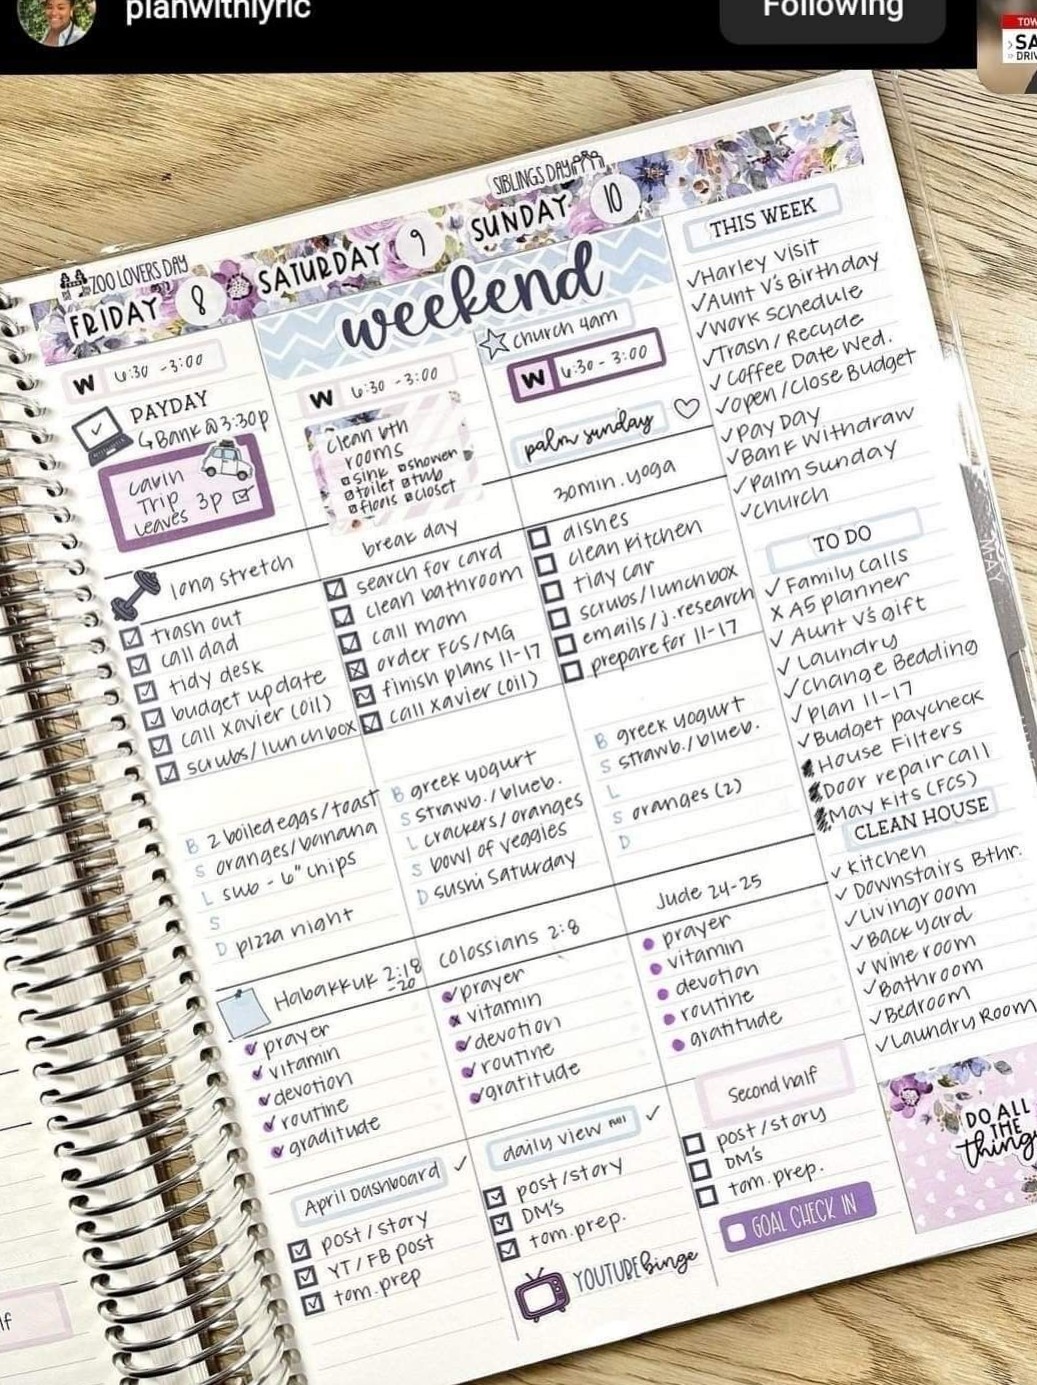 planwithlyric
Following
SIBLINGS DAY
ZOO LOVERS DAY
FRIDAY 8
SATURDAY 9
SUNDAY 10
weekend
W 6:30 - 3:00
PAYDAY
Bank @ 3:30p
Trip
Leaves 3p
long stretch
trash out
call dad
tidy desk
budget update
call xavier (oil)
scrubs/lunchbox
B 2 boiled eggs/toast
S oranges/banana
L sub - 6" chips
S
D pizza night
Habakkuk 2:18
-20
prayer
vitamin
devotion
routine
graditude
April Dashboard
post/story
YT/FB post
tom. prep
W 6:30 - 3:00
clean bth
rooms
sink shower
toilet tub
floors closet
break day
search for card
clean bathroom
call mom
order FCS/MG
finish plans 11-17
call xavier (oil)
B greek yogurt
S strawb./blueb.
L crackers/oranges
S bowl of veggies
D sushi saturday
Colossians 2:8
prayer
vitamin
devotion
routine
gratitude
daily view
post/story
DM's
tom. prep.
YOUTUBE binge
church 9am
W 6:30 - 3:00
palm sunday
30min. yoga
dishes
clean kitchen
tidy car
scrubs/lunchbox
emails/j. research
prepare for 11-17
B greek yogurt
S strawb./blueb.
L
S oranges (2)
D
Jude 24-25
prayer
vitamin
devotion
routine
gratitude
Second half
post/story
DM's
tom. prep.
GOAL CHECK IN
THIS WEEK
Harley Visit
Aunt V's Birthday
Work Schedule
Trash/Recycle
Coffee Date Wed.
Open/Close Budget
Pay Day
Bank Withdraw
Palm Sunday
Church
TO DO
Family Calls
A5 planner
Aunt V's gift
Laundry
Change Bedding
Plan 11-17
Budget paycheck
House Filters
Door repair call
May Kits (FCS)
CLEAN HOUSE
Kitchen
Downstairs Bthr.
Livingroom
Backyard
Wine room
Bathroom
Bedroom
Laundry Room
DO ALL
THE
things
MAY